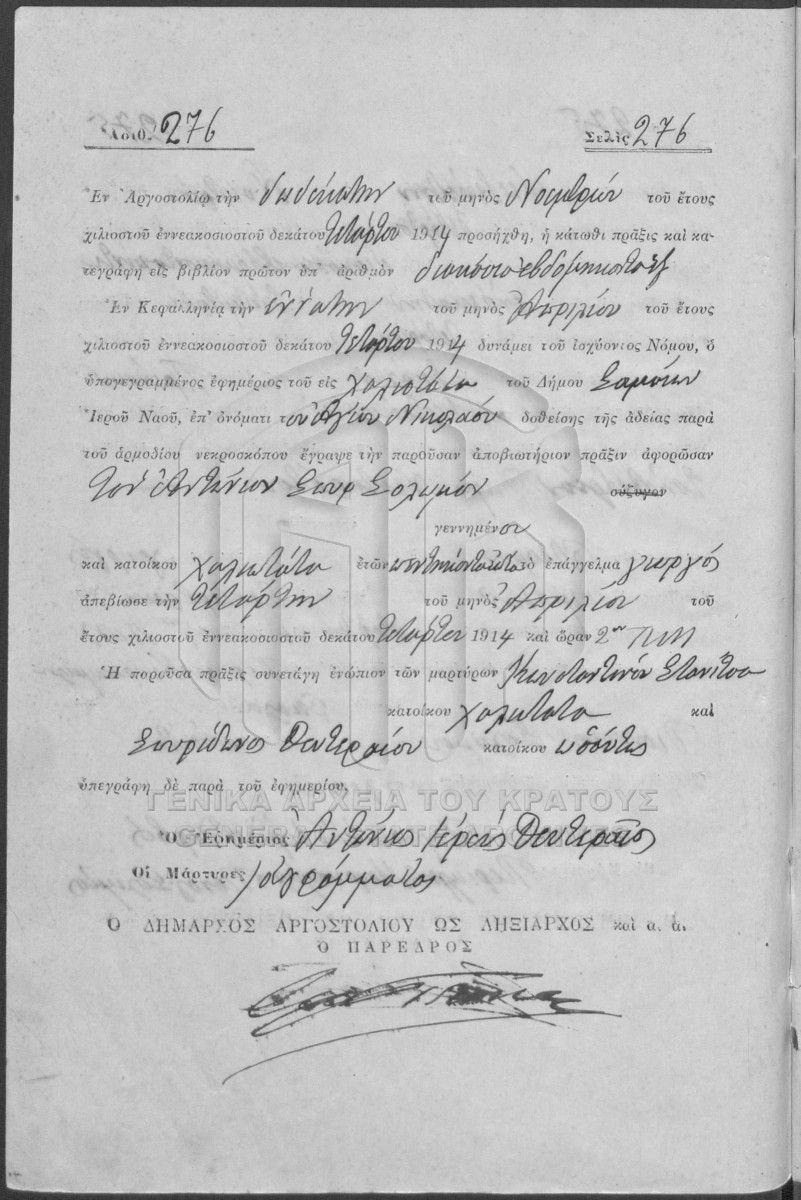 Ἀριθ. 276 Σελὶς 276
Ἐν Ἀργοστολίῳ τὴν δωδεκάτην τοῦ μηνὸς Νοεμβρίου τοῦ ἔτους
χιλιοστοῦ ἐννεακοσιοστοῦ δεκάτου τετάρτου 1914 προσήχθη, ἡ κάτωθι πρᾶξις καὶ κα-
τεγράφη εἰς βιβλίον πρῶτον ὑπ' ἀριθμὸν διακόσια ἑβδομήκοντα ἓξ
Ἐν Κεφαλληνίᾳ τὴν ἐννάτην τοῦ μηνὸς Ἀπριλίου τοῦ ἔτους
χιλιοστοῦ ἐννεακοσιοστοῦ δεκάτου τετάρτου 1914 δυνάμει τοῦ ἰσχύοντος Νόμου, ὁ
ὑπογεγραμμένος ἐφημέριος τοῦ εἰς Χαλιωτάτα τοῦ Δήμου Σαμαίων
Ἱεροῦ Ναοῦ, ἐπ' ὀνόματι τοῦ Ἁγίου Νικολάου δοθείσης τῆς ἀδείας παρὰ
τοῦ ἁρμοδίου νεκροσκόπου ἔγραψε τὴν παροῦσαν ἀποβιωτήριον πρᾶξιν ἀφορῶσαν
Τὸν Ἀντώνιον Σπυρ Σολωμὸν σύζυγον
γεννημένον
καὶ κατοίκου Χαλιωτάτα ἐτῶν πεντήκοντα τὸ ἐπάγγελμα γεωργὸς
ἀπεβίωσε τὴν τετάρτην τοῦ μηνὸς Ἀπριλίου τοῦ
ἔτους χιλιοστοῦ ἐννεακοσιοστοῦ δεκάτου τετάρτου 1914 καὶ ὥραν 2αν πμμ
Ἡ παροῦσα πρᾶξις συνετάγη ἐνώπιον τῶν μαρτύρων Κωνσταντίνου
κατοίκου Χαλιωτάτα καὶ
Σπυρίδωνος Δευτεραίου κατοίκου ὡσαύτως
ὑπεγράφη δὲ παρὰ τοῦ ἐφημερίου.
ΓΕΝΙΚΑ ΑΡΧΕΙΑ ΤΟΥ ΚΡΑΤΟΥΣ
Ὁ Ἐφημέριος Ἀντώνιος Ἱερεὺς Δευτεραῖος
Οἱ Μάρτυρες ἀγράμματος
Ὁ ΔΗΜΑΡΧΟΣ ΑΡΓΟΣΤΟΛΙΟΥ ΩΣ ΛΗΞΙΑΡΧΟΣ καὶ α. ἀ.
Ὁ ΠΑΡΕΔΡΟΣ